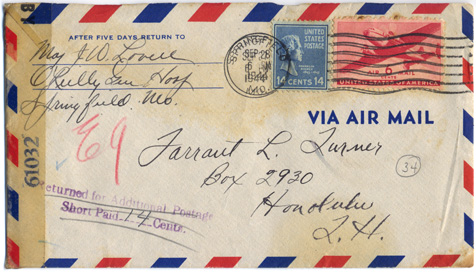 BY
AFTER FIVE DAYS RETURN TO
Maj J W Lowell
O'Reilly Gen Hosp
Springfield, Mo.
SPRINGFIELD
SEP 26
1944
MO.
UNITED STATES
POSTAGE
14 CENTS 14
6
UNITED STATES OF AMERICA
VIA AIR MAIL
61032
Farrant L. Turner
34
Box 2930
Honolulu
T.H.
Returned for Additional Postage
Short Paid 14 Cents.